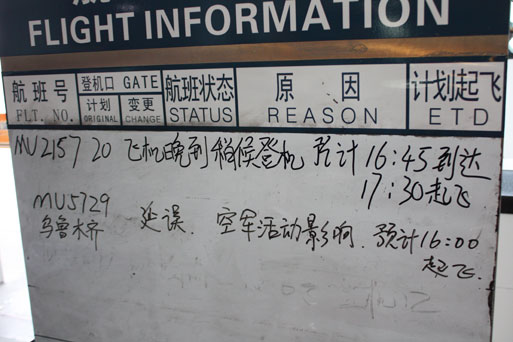 FLIGHT INFORMATION
航班号 登机口 GATE 航班状态 原因 计划起飞
FLT. NO. 计划 变更 STATUS REASON ETD
ORIGINAL CHANGE
MU2157 20 飞机晚到 稍候登机 预计 16:45到达
17:30起飞
MU5729
乌鲁木齐 延误. 空军活动影响. 预计16:00
起飞.